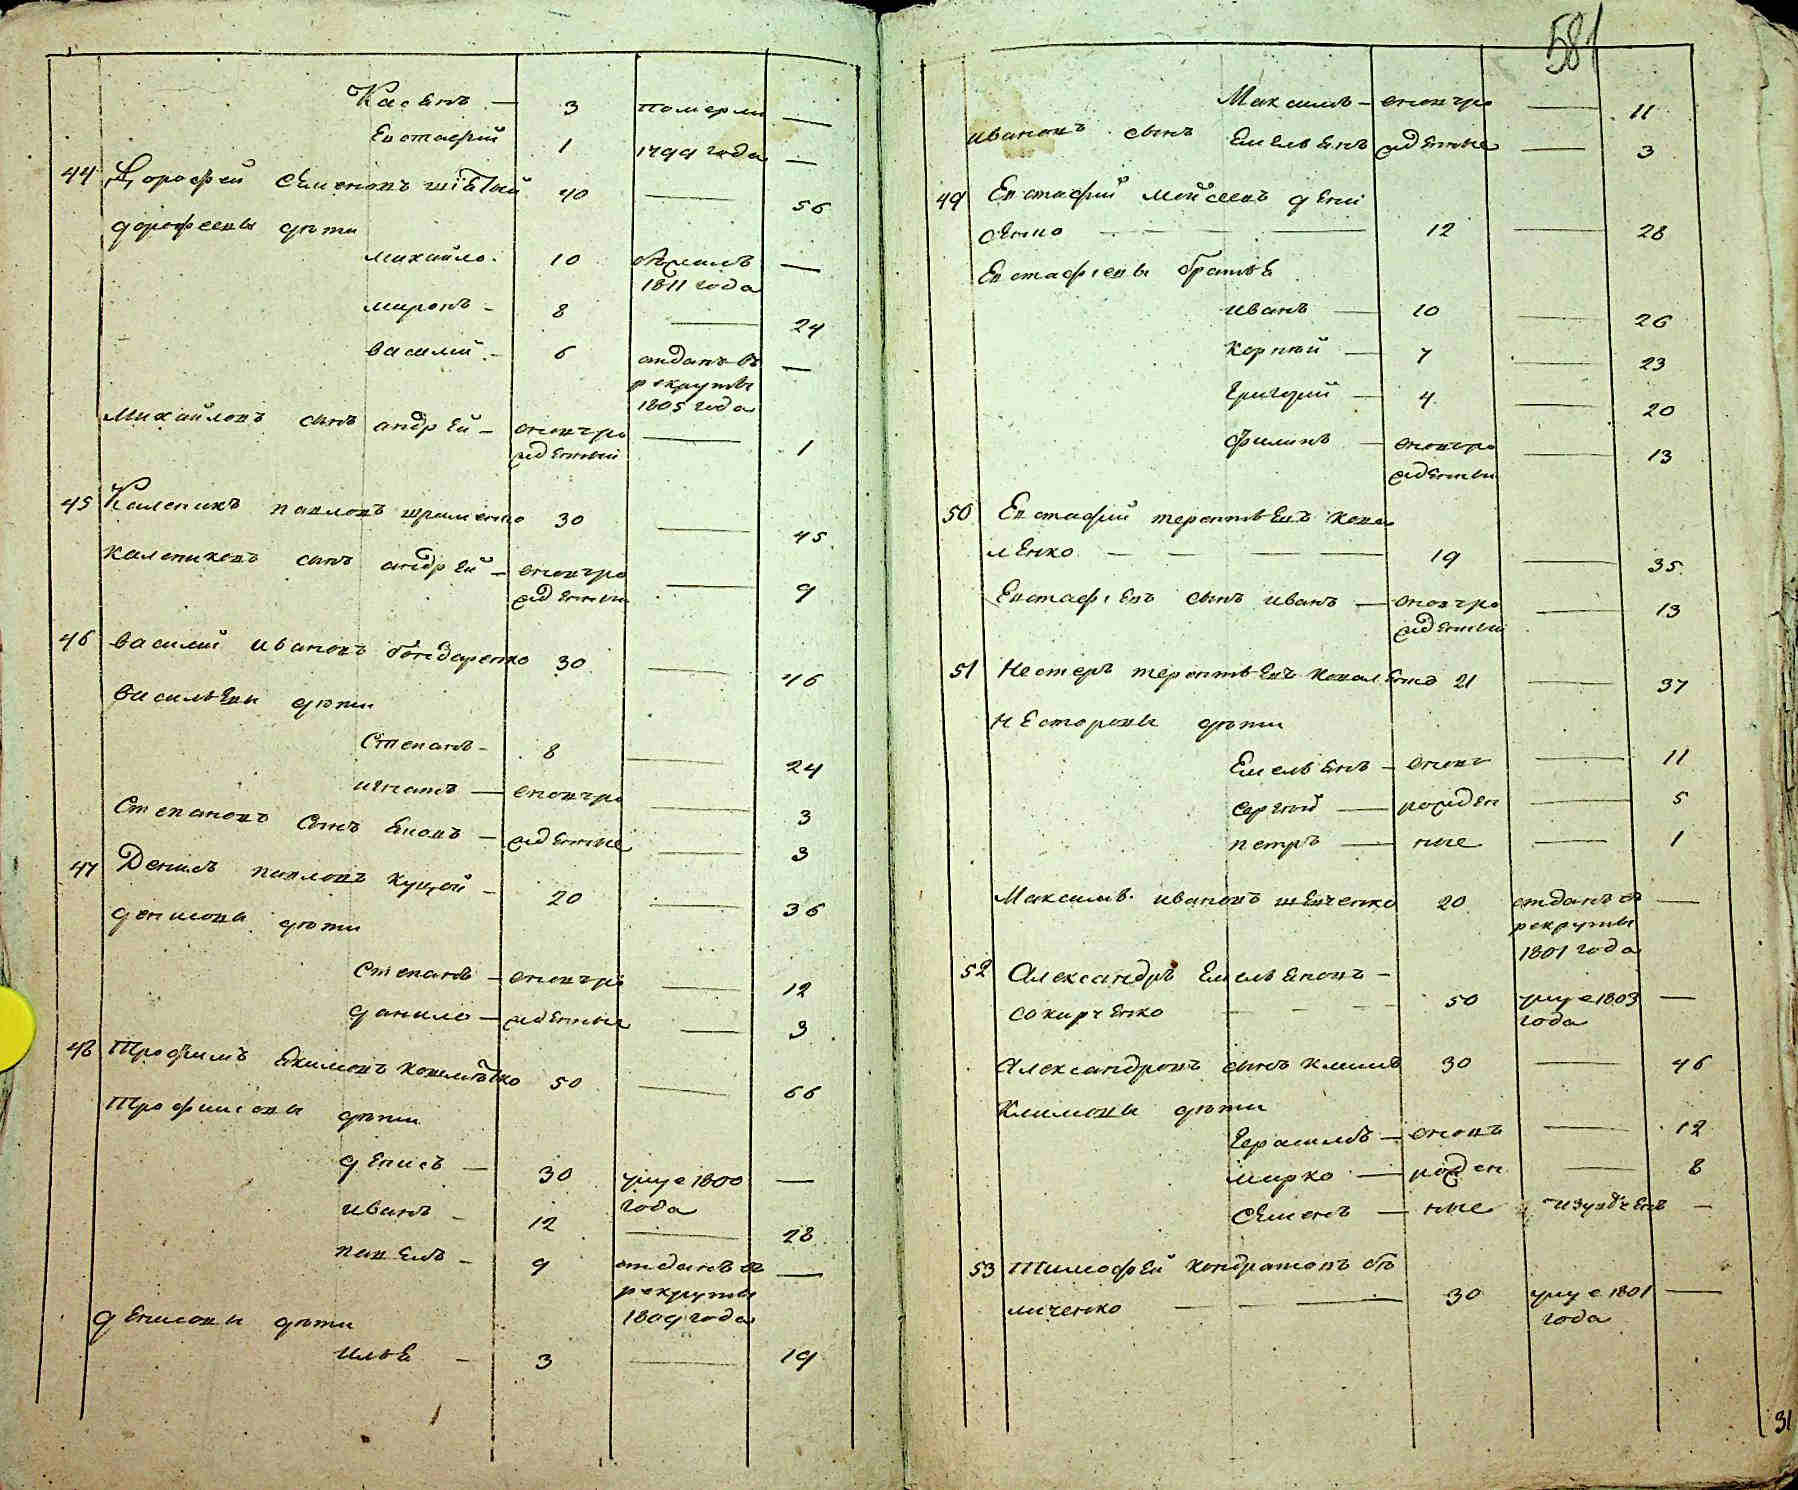 Касянъ — 3 померли —
Евстафий 1 1799 года —
44 Дорофей Семеновъ 40 — 56
дорофеевы дѣти
михайло. 10 1811 года —
миронъ - 8 — 24
василий - 6 отданъ въ —
рекруты
1805 года
Михайловъ сынъ андрей - вновъро — 1
жденный
45 Каленикъ павловъ шраменко 30 — 45
калениковъ сынъ андрей - вновъро — 9
жденный
46 василий ивановъ бондаренко 30 — 46
васильевы дѣти
Степанъ - 8 — 24
игнатъ — вновъро — 3
Степановъ Сынъ яковъ — жденные — 3
47 Денисъ павловъ куцый - 20 — 36
денисовы дѣти
Степанъ — вновъро — 12
данило — жденные — 3
48 Трофимъ якимовъ 50 — 66
Трофимовы дѣти
денисъ — 30 умре 1800 —
года
иванъ - 12 — 28
павелъ - 9 отданъ въ —
рекруты
1809 года
денисовы дѣти
илья - 3 — 19
581
Максимъ — вновъро — 11
ивановъ сынъ Емельянъ жденные — 3
49 Евстафий мойсеевъ дени
сенко — 12 — 28
Евстафиевы братья
иванъ — 10 — 26
корнѣй — 7 — 23
григорий — 4 — 20
филипъ — вновъро — 13
жденный
50 Евстафий терентьевъ кова
ленко — — — — 19 — 35
Евстафиевъ сынъ иванъ — вновъро — 13
жденный
51 Нестеръ терентьевъ коваленко 21 — 37
нестеровы дѣти
Емельянъ — вновъ — 11
сергѣй — рожден — 5
петръ — ные — 1
Максимъ ивановъ шевченко 20 отданъ въ —
рекруты
1801 года
52 Александръ Емельяновъ —
сокирченко - - - - 50 умре 1803 —
года
Александровъ сынъ климъ 30 — 46
климовы дѣти
герасимъ — вновъ — 12
марко — рожден — 8
семенъ — ные —
53 Тимофей кондратовъ
миченко — — — 30 умре 1801 —
года
31